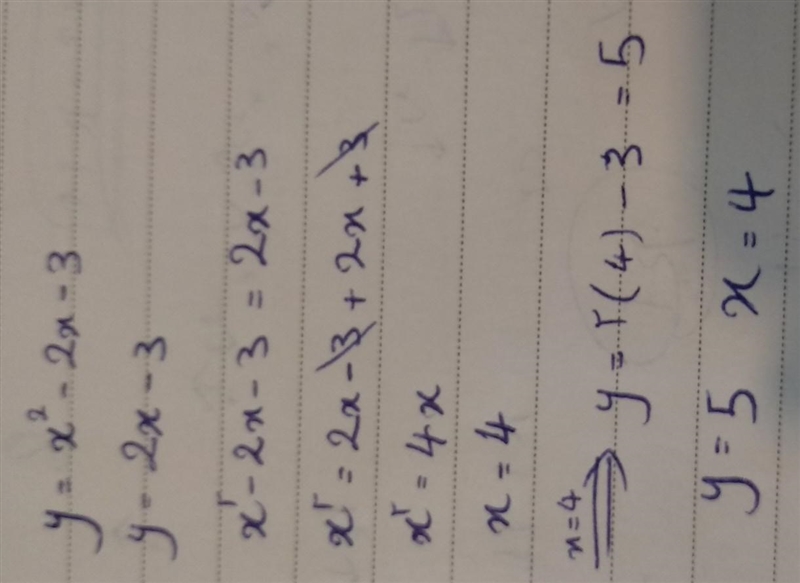 y = x² - 2x - 3
y = 2x - 3
x^۲ - 2x - 3 = 2x - 3
x^۲ = 2x - 3 + 2x + 3
x^۲ = 4x
x = 4
x=4 ⟹ y = ۲(4) - 3 = 5
y = 5 x = 4